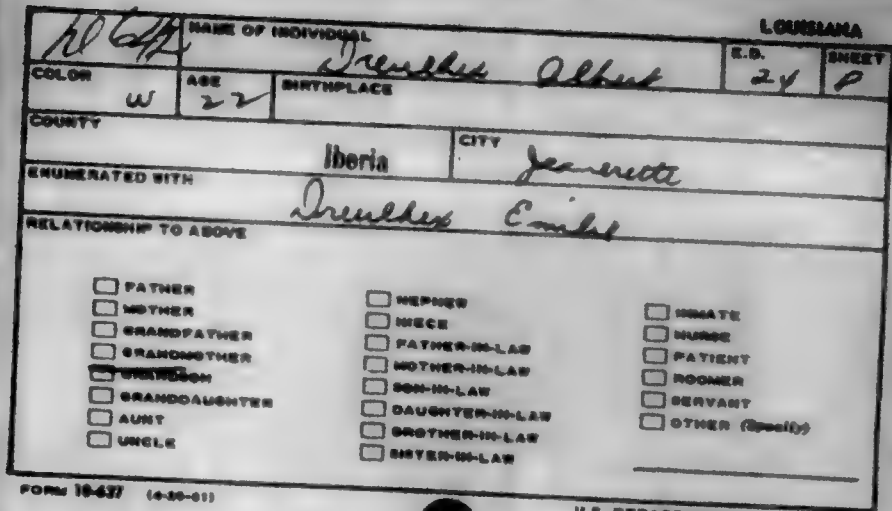 LOUISIANA
NAME OF INDIVIDUAL
Albert
E.D.
24
SHEET
P
COLOR
W
AGE
22
BIRTHPLACE
COUNTY
Iberia
CITY
Jeanerette
ENUMERATED WITH
RELATIONSHIP TO ABOVE
FATHER
MOTHER
GRANDFATHER
GRANDMOTHER
GRANDSON
GRANDDAUGHTER
AUNT
UNCLE
NEPHEW
NIECE
FATHER-IN-LAW
MOTHER-IN-LAW
SON-IN-LAW
DAUGHTER-IN-LAW
BROTHER-IN-LAW
SISTER-IN-LAW
INMATE
NURSE
PATIENT
ROOMER
SERVANT
OTHER (Specify)
FORM 10-637 (4-20-61)